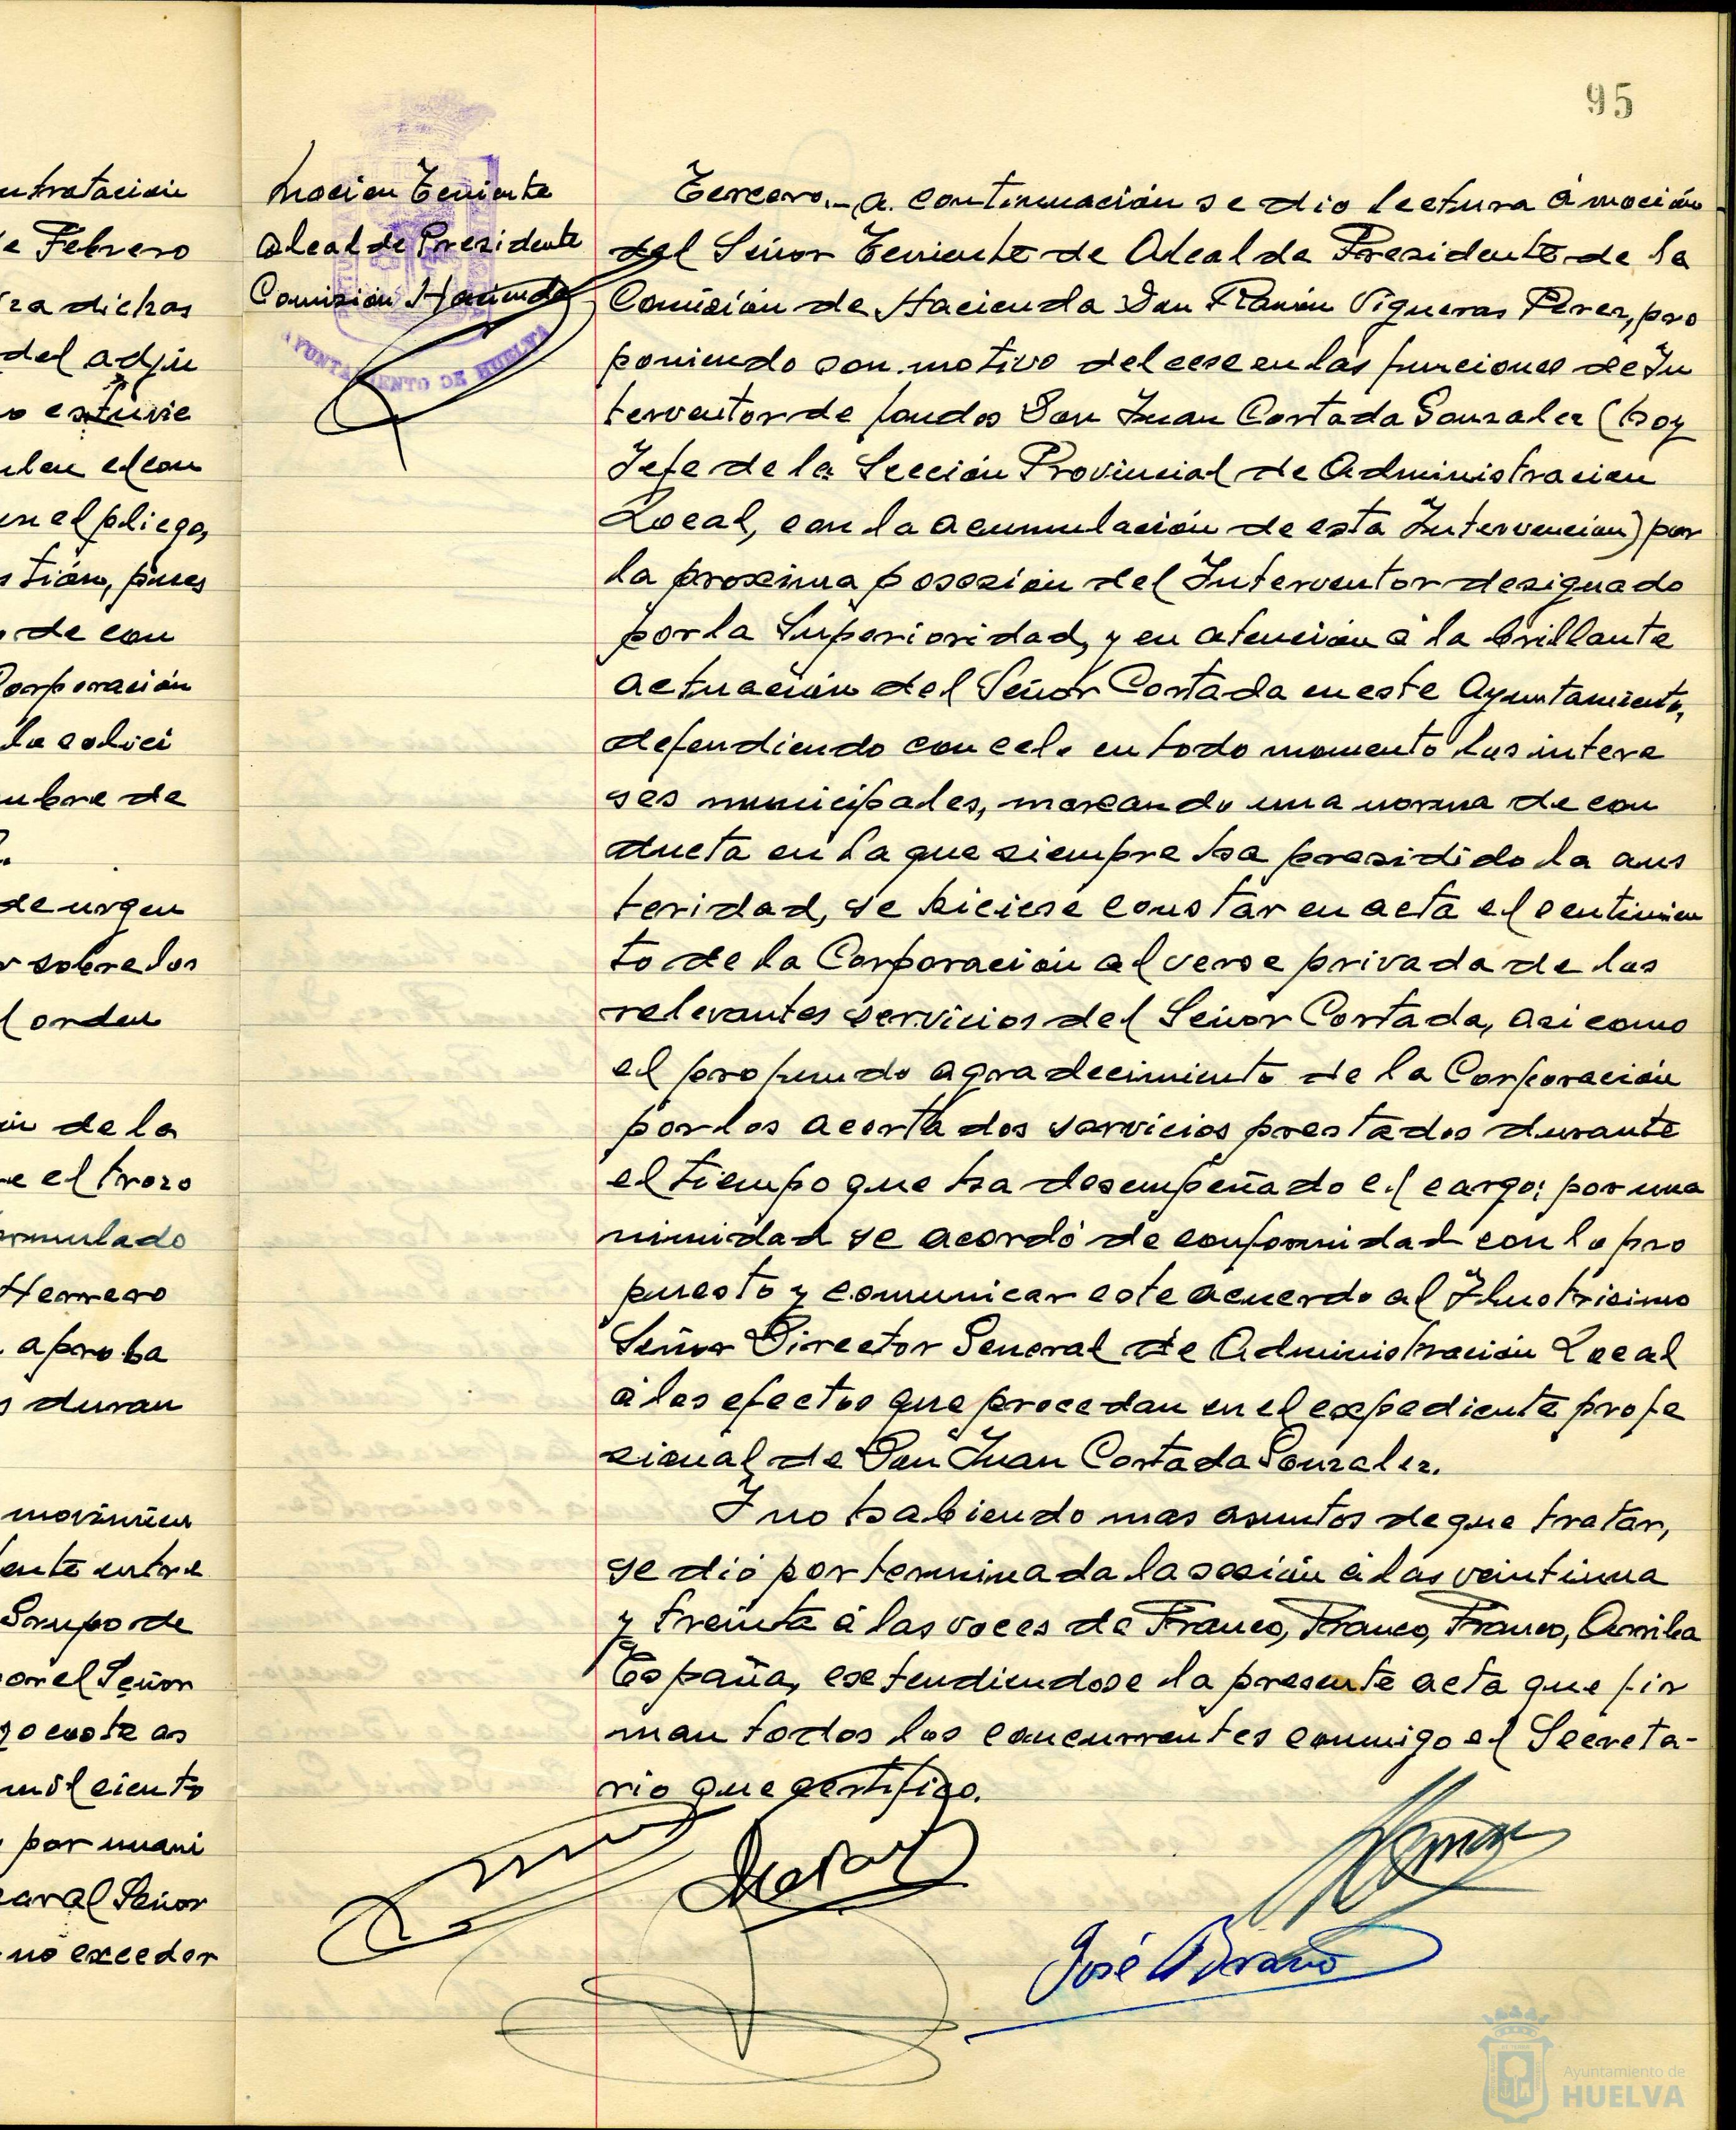 95
utratacion
e Febrero
ra dichas
del adju
o estuvie
ulan el con
en el pliego,
stión, pues
de con
Corporación
la solici
mbre de
de urgen
r sobre los
l orden
in de la
e el trozo
ormulado
Herrero
aproba
s duran
movimien
ente entre
Grupo de
or el Señor
go coste as
mil ciento
por unani
car al Señor
no exceder
Mocion Teniente
Alcalde Presidente
Comision Hacienda
AYUNTAMIENTO DE HUELVA
Tercero.- A continuación se dio lectura á moción
del Señor Teniente de Alcalde Presidente de la
Comisión de Hacienda Don Ramón Vigueras Perez, pro
poniendo con motivo del cese en las funciones de In
terventor de fondos Don Juan Cortada Gonzalez (hoy
Jefe de la Sección Provincial de Administracion
Local, con la acumulación de esta Intervencion) por
la proxima posesión del Interventor designado
por la Superioridad, y en atención á la brillante
actuación del Señor Cortada en este Ayuntamiento,
defendiendo con celo en todo momento los intere
ses municipales, marcando una norma de con
ducta en la que siempre ha presidido la aus
teridad, se hiciese constar en acta el sentimien
to de la Corporación al verse privada de los
relevantes servicios del Señor Cortada, asi como
el profundo agradecimiento de la Corporación
por los acertados servicios prestados durante
el tiempo que ha desempeñado el cargo; por una
nimidad se acordó de conformidad con lo pro
puesto y comunicar este acuerdo al Ilustrisimo
Señor Director General de Administración Local
á los efectos que procedan en el expediente profe
sional de Don Juan Cortada Gonzalez.
Y no habiendo mas asuntos de que tratar,
se dió por terminada la sesión á las veintiuna
y treinta á las voces de Franco, Franco, Franco, Arriba
España, extendiendose la presente acta que fir
man todos los concurrentes conmigo el Secreta-
rio que certifico.
José
Ayuntamiento de
HUELVA